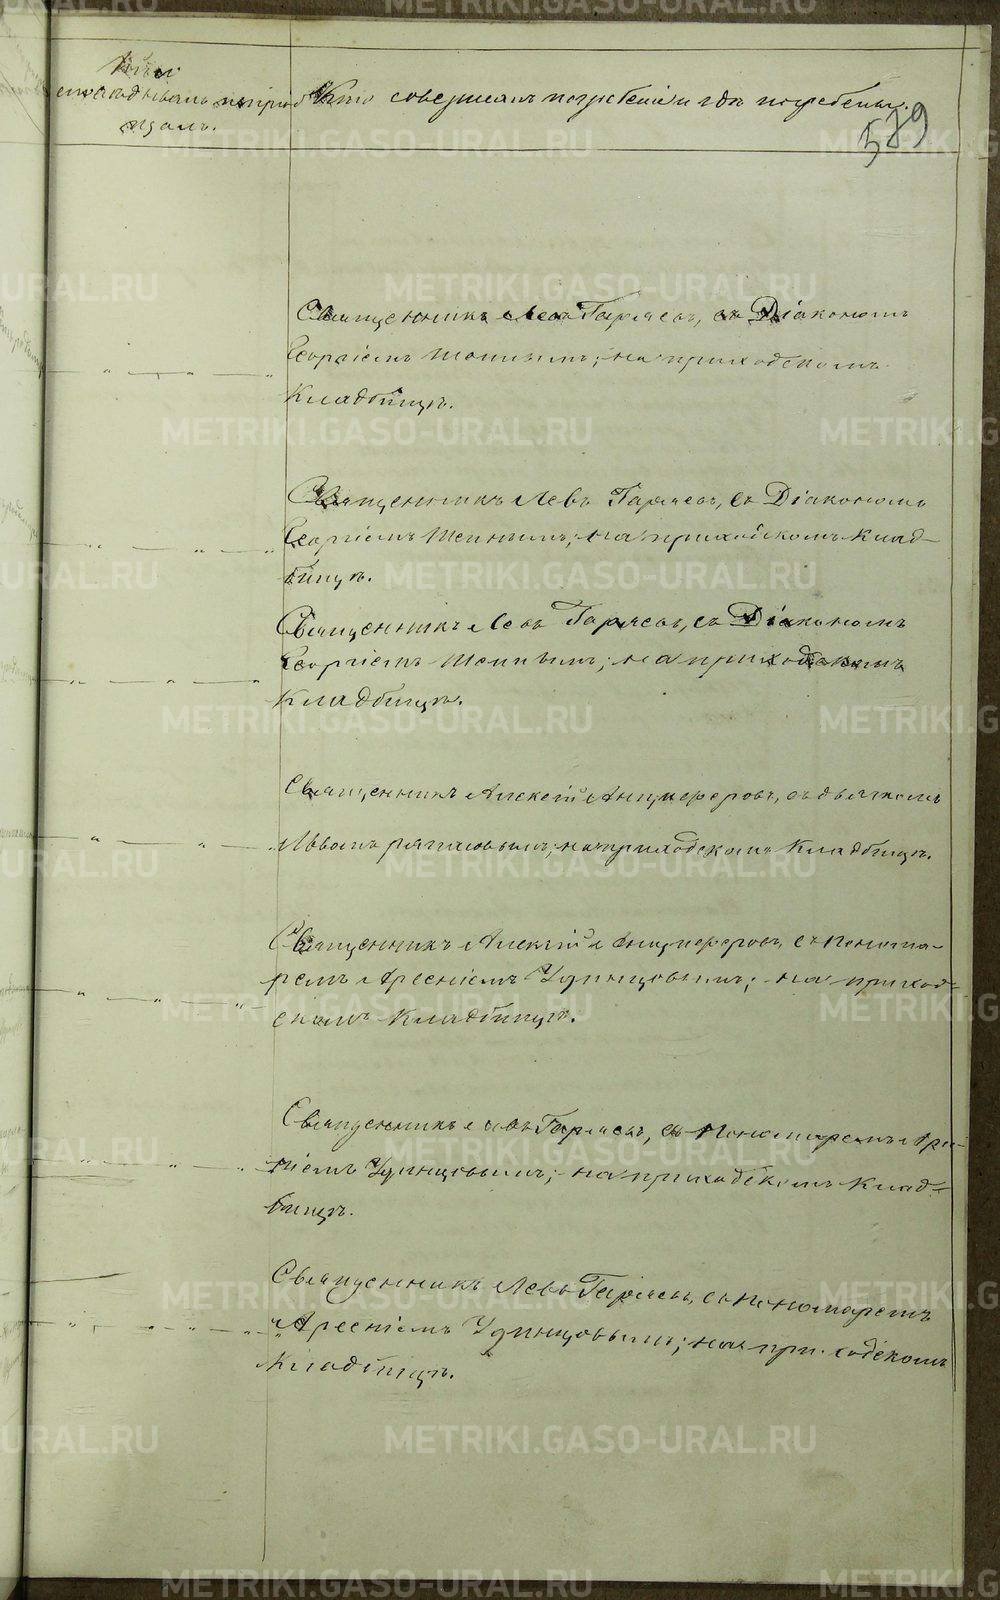 Кто совершалъ погребеніе и гдѣ погребены.
579
Священникъ Левъ Гаряевъ, съ Діакономъ
Георгіемъ Топинымъ; на приходскомъ
Кладбищѣ.
Священникъ Левъ Гаряевъ, съ Діакономъ
Георгіемъ Топинымъ; на приходскомъ Клад-
бищѣ.
Священникъ Левъ Гаряевъ, съ Діакономъ
Георгіемъ Топинымъ; на приходскомъ
Кладбищѣ.
Священникъ Алексій Анциферовъ, съ дьячкомъ
Львомъ на приходскомъ Кладбищѣ.
Священникъ Алексій Анциферовъ, съ Понома-
ремъ Арсеніемъ Удинцовымъ; на приход-
скомъ Кладбищѣ.
Священникъ Левъ Гаряевъ, съ Пономаремъ Арсе-
ніемъ Удинцовымъ; на приходскомъ Клад-
бищѣ.
Священникъ Левъ Гаряевъ, съ Пономаремъ
Арсеніемъ Удинцовымъ; на приходскомъ
Кладбищѣ.
METRIKI.GASO-URAL.RU